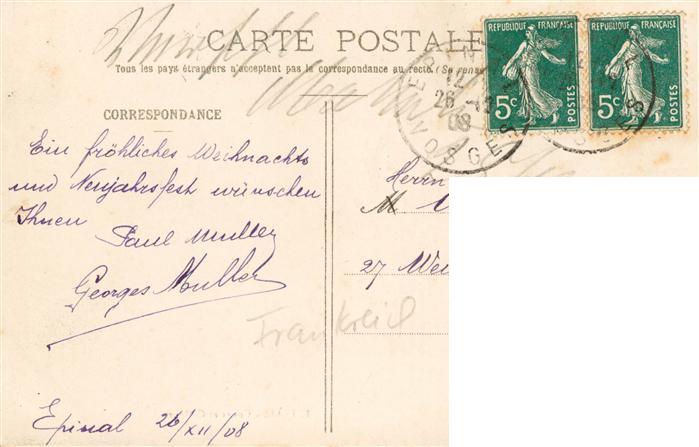 CARTE POSTALE
Tous les pays étrangers n'acceptent pas le correspondance au recto. (Se rense
CORRESPONDANCE
Ein fröhliches Weihnachts
und Neujahrsfest wünschen
Ihnen
Paul Muller
Georges Muller
Epinal 26/XII/08
Frankreich
REPUBLIQUE FRANÇAISE
5c
POSTES
REPUBLIQUE FRANÇAISE
5c
POSTES
26
08
VOSGES
Herrn
M
27